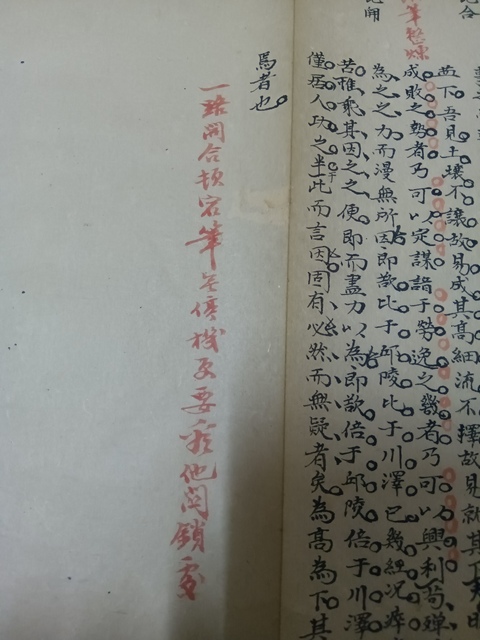 土壤不讓故易成其高細流不擇故易就其下
成敗之勢者乃可以定謀諳于勞逸之數者乃可以興利苟殫
為之之力而漫無所因即欲比于邱陵比于川澤已幾經況瘁
苦惟乘其因之之便即而盡力以為即欲倍于邱陵倍于川澤
僅居人功之半此而言因固有必然而無疑者矣為高為下其
焉者也
一路開合頓宕筆無停機更要看他関鎖處